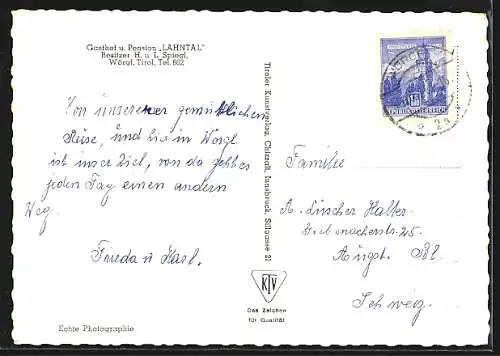 Gasthof u. Pension „LAHNTAL"
Besitzer H. u. L. Spiegl,
Wörgl, Tirol, Tel. 662
Von unserer gemütlichen
Reise, und hier in Wörgl
ist unser Ziel, von da geht es
jeden Tag einen andern
Weg.
Frieda u Karl.
Echte Photographie
Tiroler Kunstverlag, Chizzali, Innsbruck, Sillgasse 21
KTV
Das Zeichen
für Qualität
REPUBLIK ÖSTERREICH
WÖRGL
Familie
A. Lüscher Halter
25
Augst. Bl.
Schweiz.